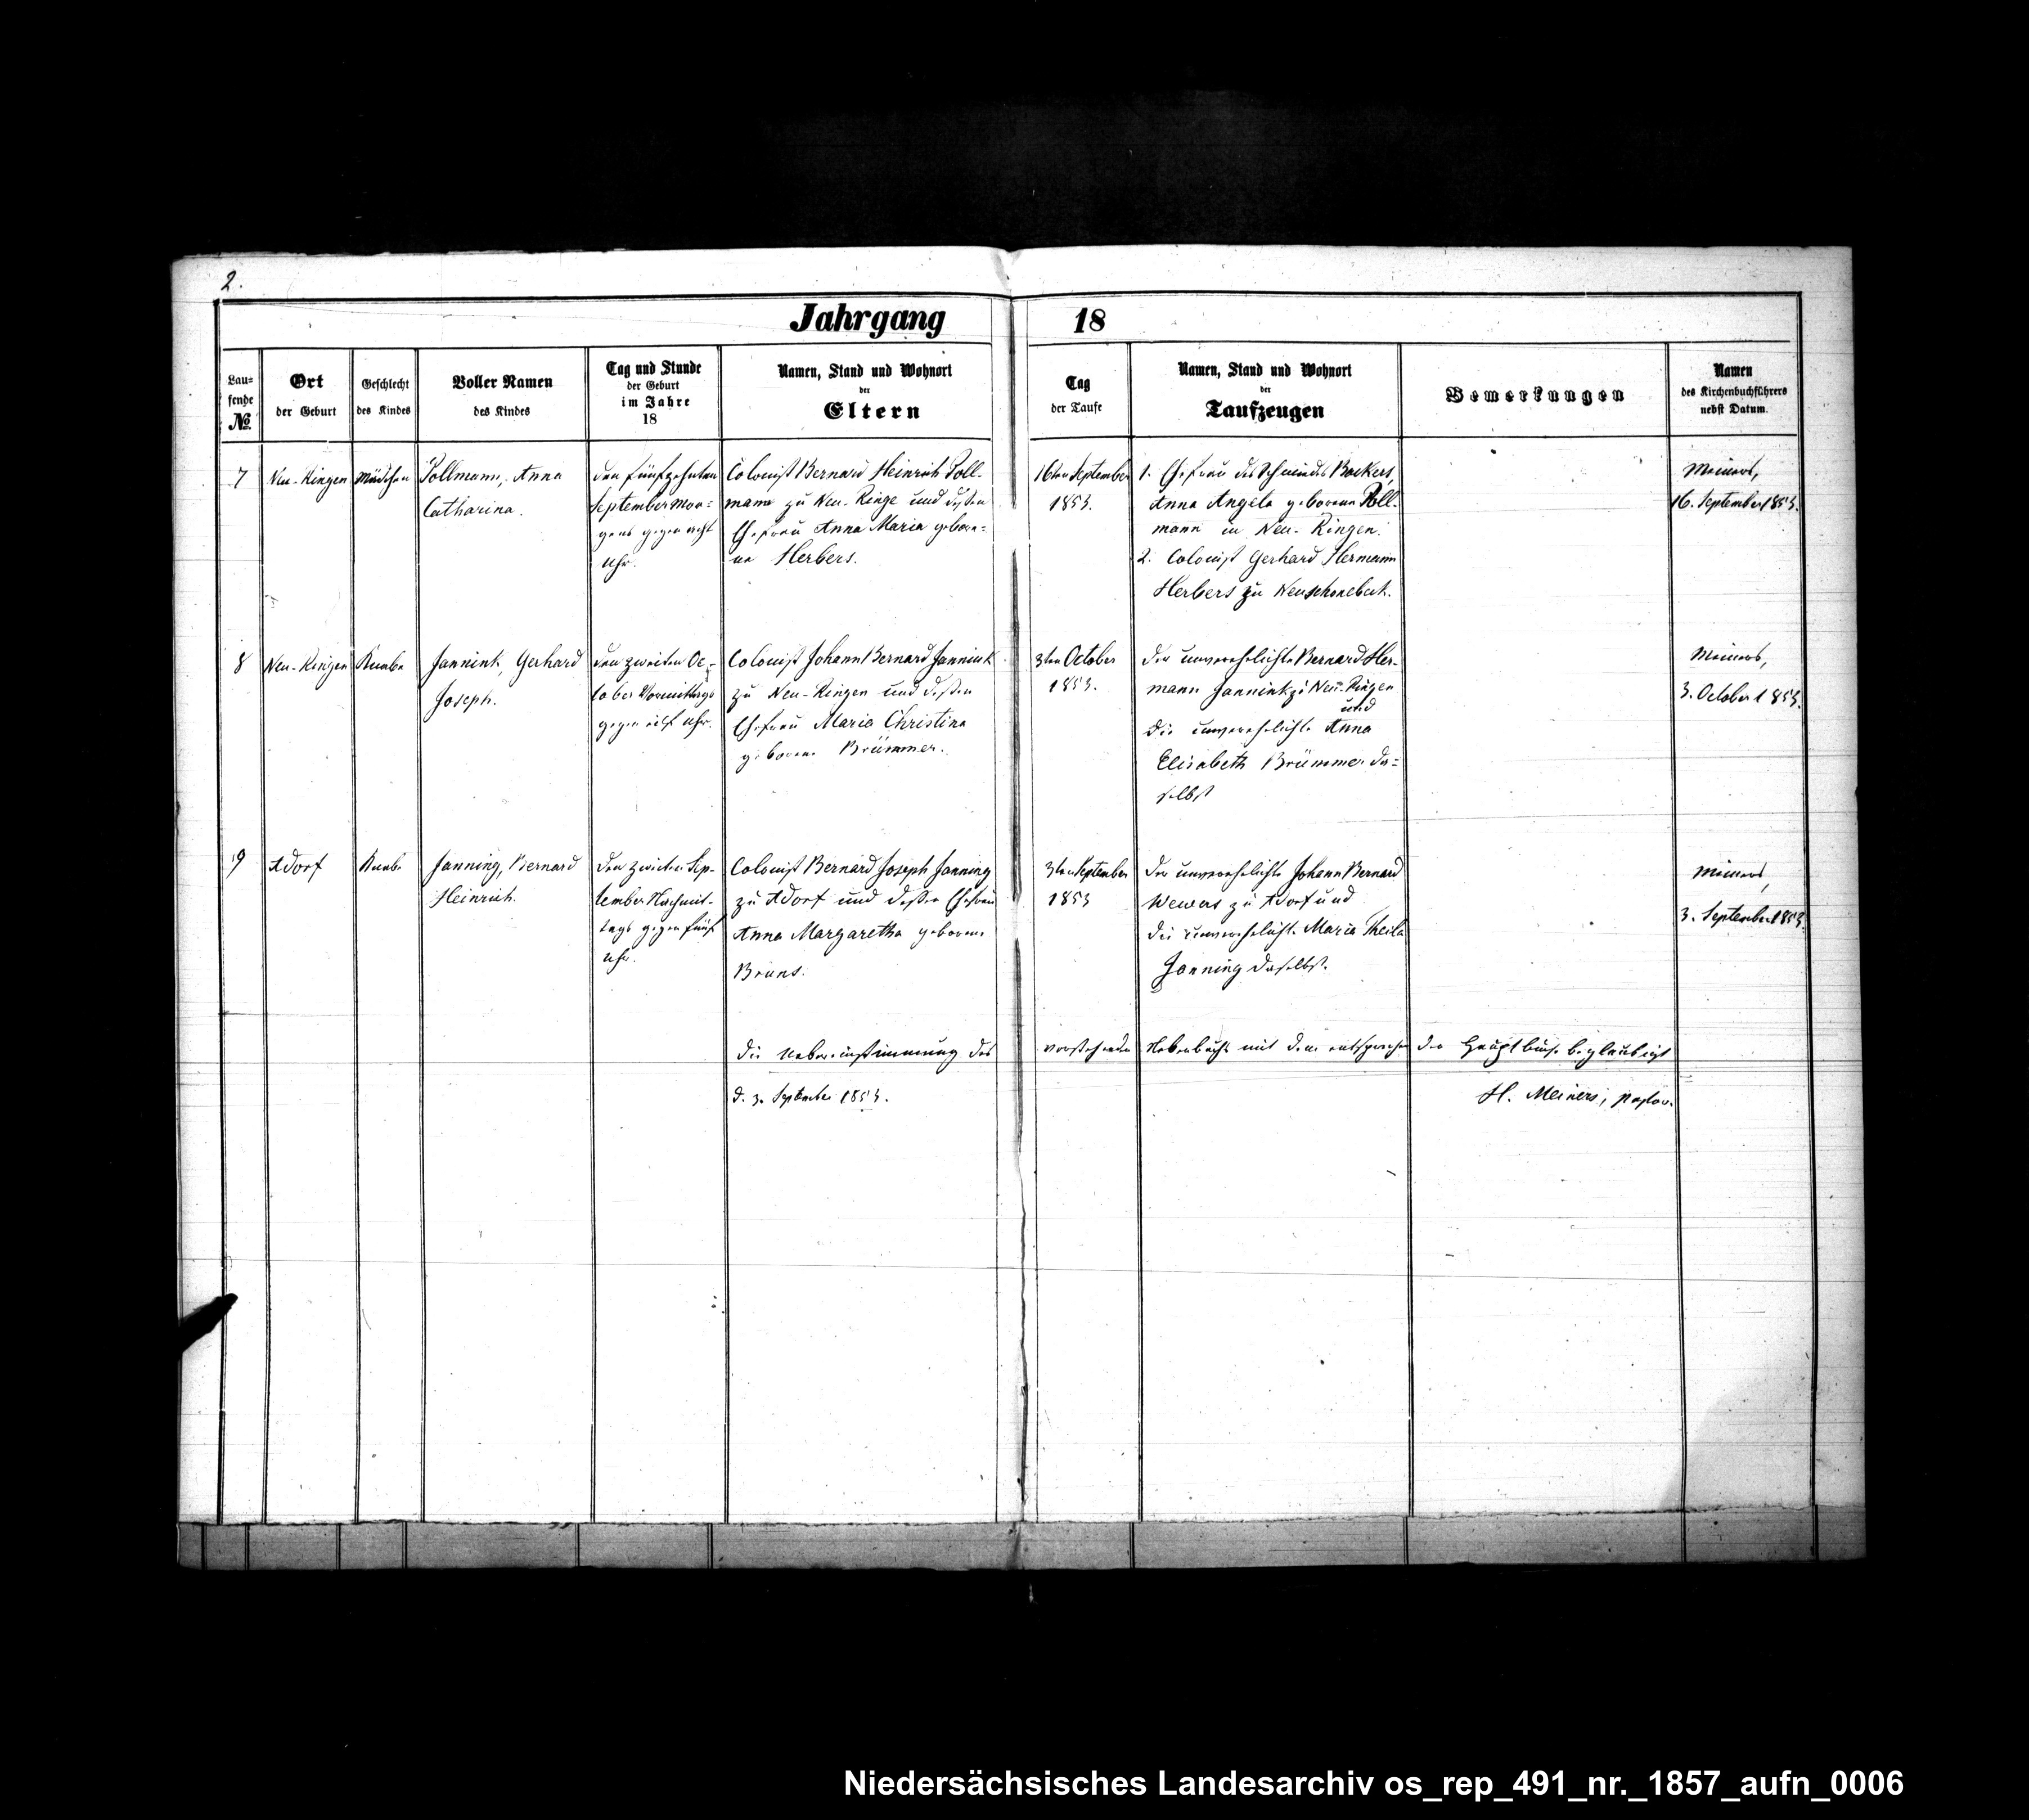 2.
Jahrgang 18
Lau=
fende
№
Ort
der Geburt
Geschlecht
des Kindes
Voller Namen
des Kindes
Tag und Stunde
der Geburt
im Jahre
18
Namen, Stand und Wohnort
der
Eltern
Tag
der Taufe
Namen, Stand und Wohnort
der
Taufzeugen
Bemerkungen
Namen
des Kirchenbuchführers
nebst Datum.
7
Neu-Ringen
Mädchen
Pollmann, Anna
Catharina.
den fünfzehnten
September Mor=
gens gegen acht
Uhr.
Colonist Bernard Heinrich Poll-
mann zu Neu-Ringe und dessen
Ehefrau Anna Maria gebore=
ne Herbers.
16ten September
1853.
1. Ehefrau des Schmieds Backers,
Anna Angela geborene Poll-
mann in Neu-Ringen.
2. Colonist Gerhard Hermann
Herbers zu Neuschonebeck.
Meiners,
16. September 1853.
8
Neu-Ringen
Knabe
Jannink, Gerhard
Joseph.
den zweiten Oc=
tober Vormittags
gegen eilf Uhr.
Colonist Johann Bernard Jannink
zu Neu-Ringen und dessen
Ehefrau Maria Christina
geborene Brümmer.
3ten October
1853.
Der unverehelichte Bernard Her-
mann Jannink zu Neu-Ringen
und
die unverehelichte Anna
Elisabeth Brümmer da=
selbst
Meiners,
3. October 1853.
9
Adorf
Knabe
Janning, Bernard
Heinrich.
Den zweiten Sep-
tember Nachmit-
tags gegen fünf
Uhr.
Colonist Bernard Joseph Janning
zu Adorf und dessen Ehefrau
Anna Margaretha geborene
Bruns.
3ten September
1853
Der unverehelichte Johann Bernard
Wewers zu Adorf und
die unverehelichte Maria Theila
Janning daselbst.
Meiners,
3. September 1853.
Die Uebereinstimmung des vorstehenden Nebenbuchs mit dem entsprechenden Hauptbuche beglaubigt
d. 3. September 1853.
H. Meiners, pastor.
Niedersächsisches Landesarchiv os_rep_491_nr._1857_aufn_0006